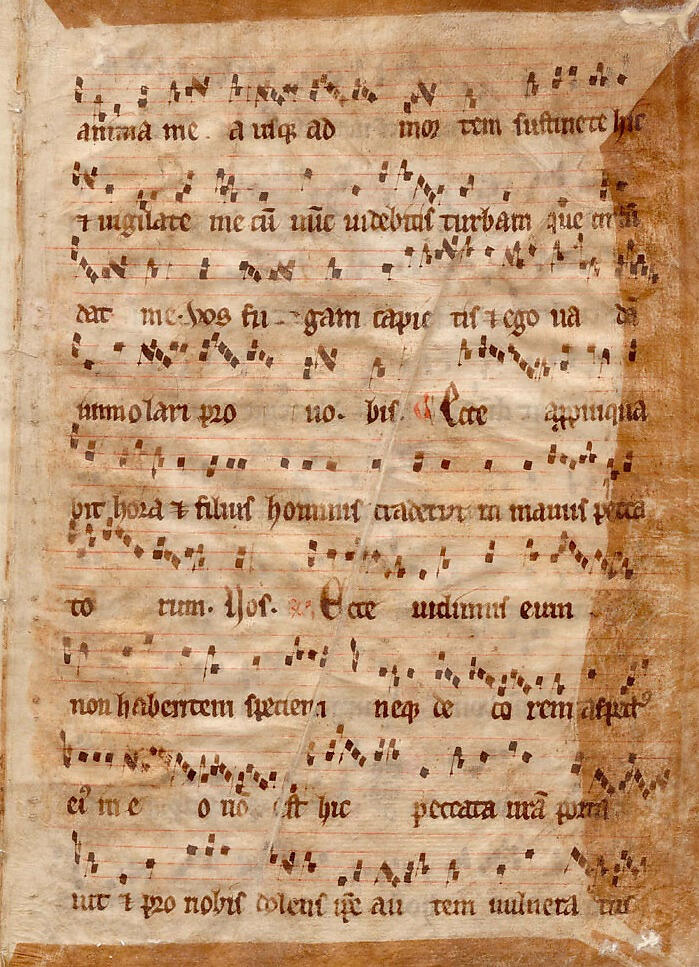 anima me a usqȝ ad mor tem sustinete hic
⁊ uigilate me cū nūc uidebitis turbam que circū
dat me. Vos fu gam capie tis ⁊ ego ua dā
immolari pro uo. bis. Ecce appinqua
bit hora ⁊ filius hominis tradetur in manus pecca
to rum. Vos. Ecce uidimus eum
non habentem speciem neqȝ de co rem aspectꝰ
eiꝰ in e o nō est hic peccata nrā porta
uit ⁊ pro nobis dolens ip̄e au tem uulnera tus